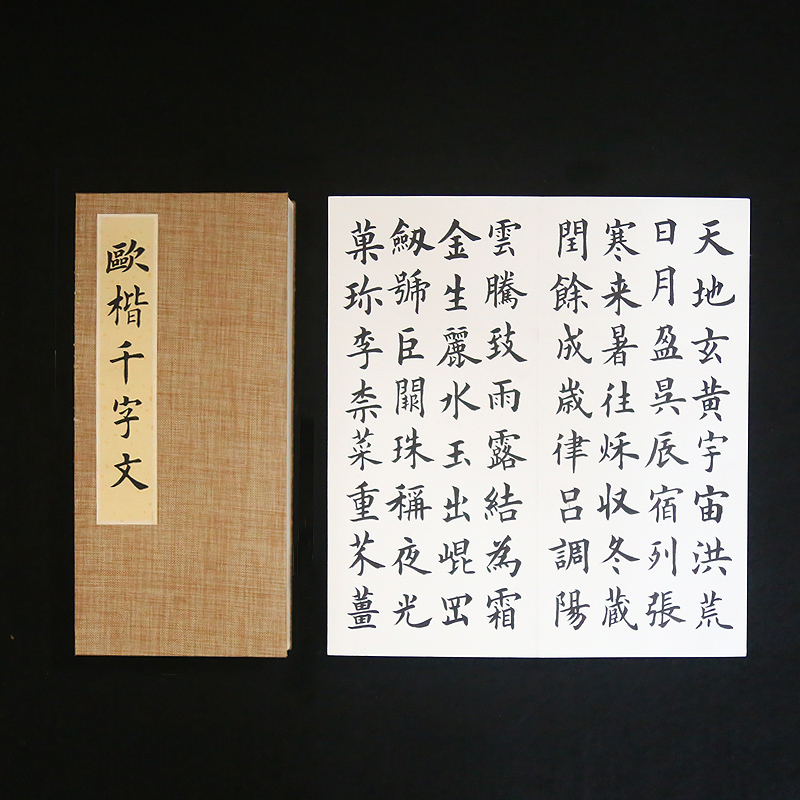 歐楷千字文
天地玄黃宇宙洪荒
日月盈昃辰宿列張
寒来暑往秌収冬蔵
閏餘成歲律吕調陽
雲騰致雨露結為霜
金生麗水玉出崐罡
劔號巨闕珠稱夜光
菓珎李柰菜重芥薑